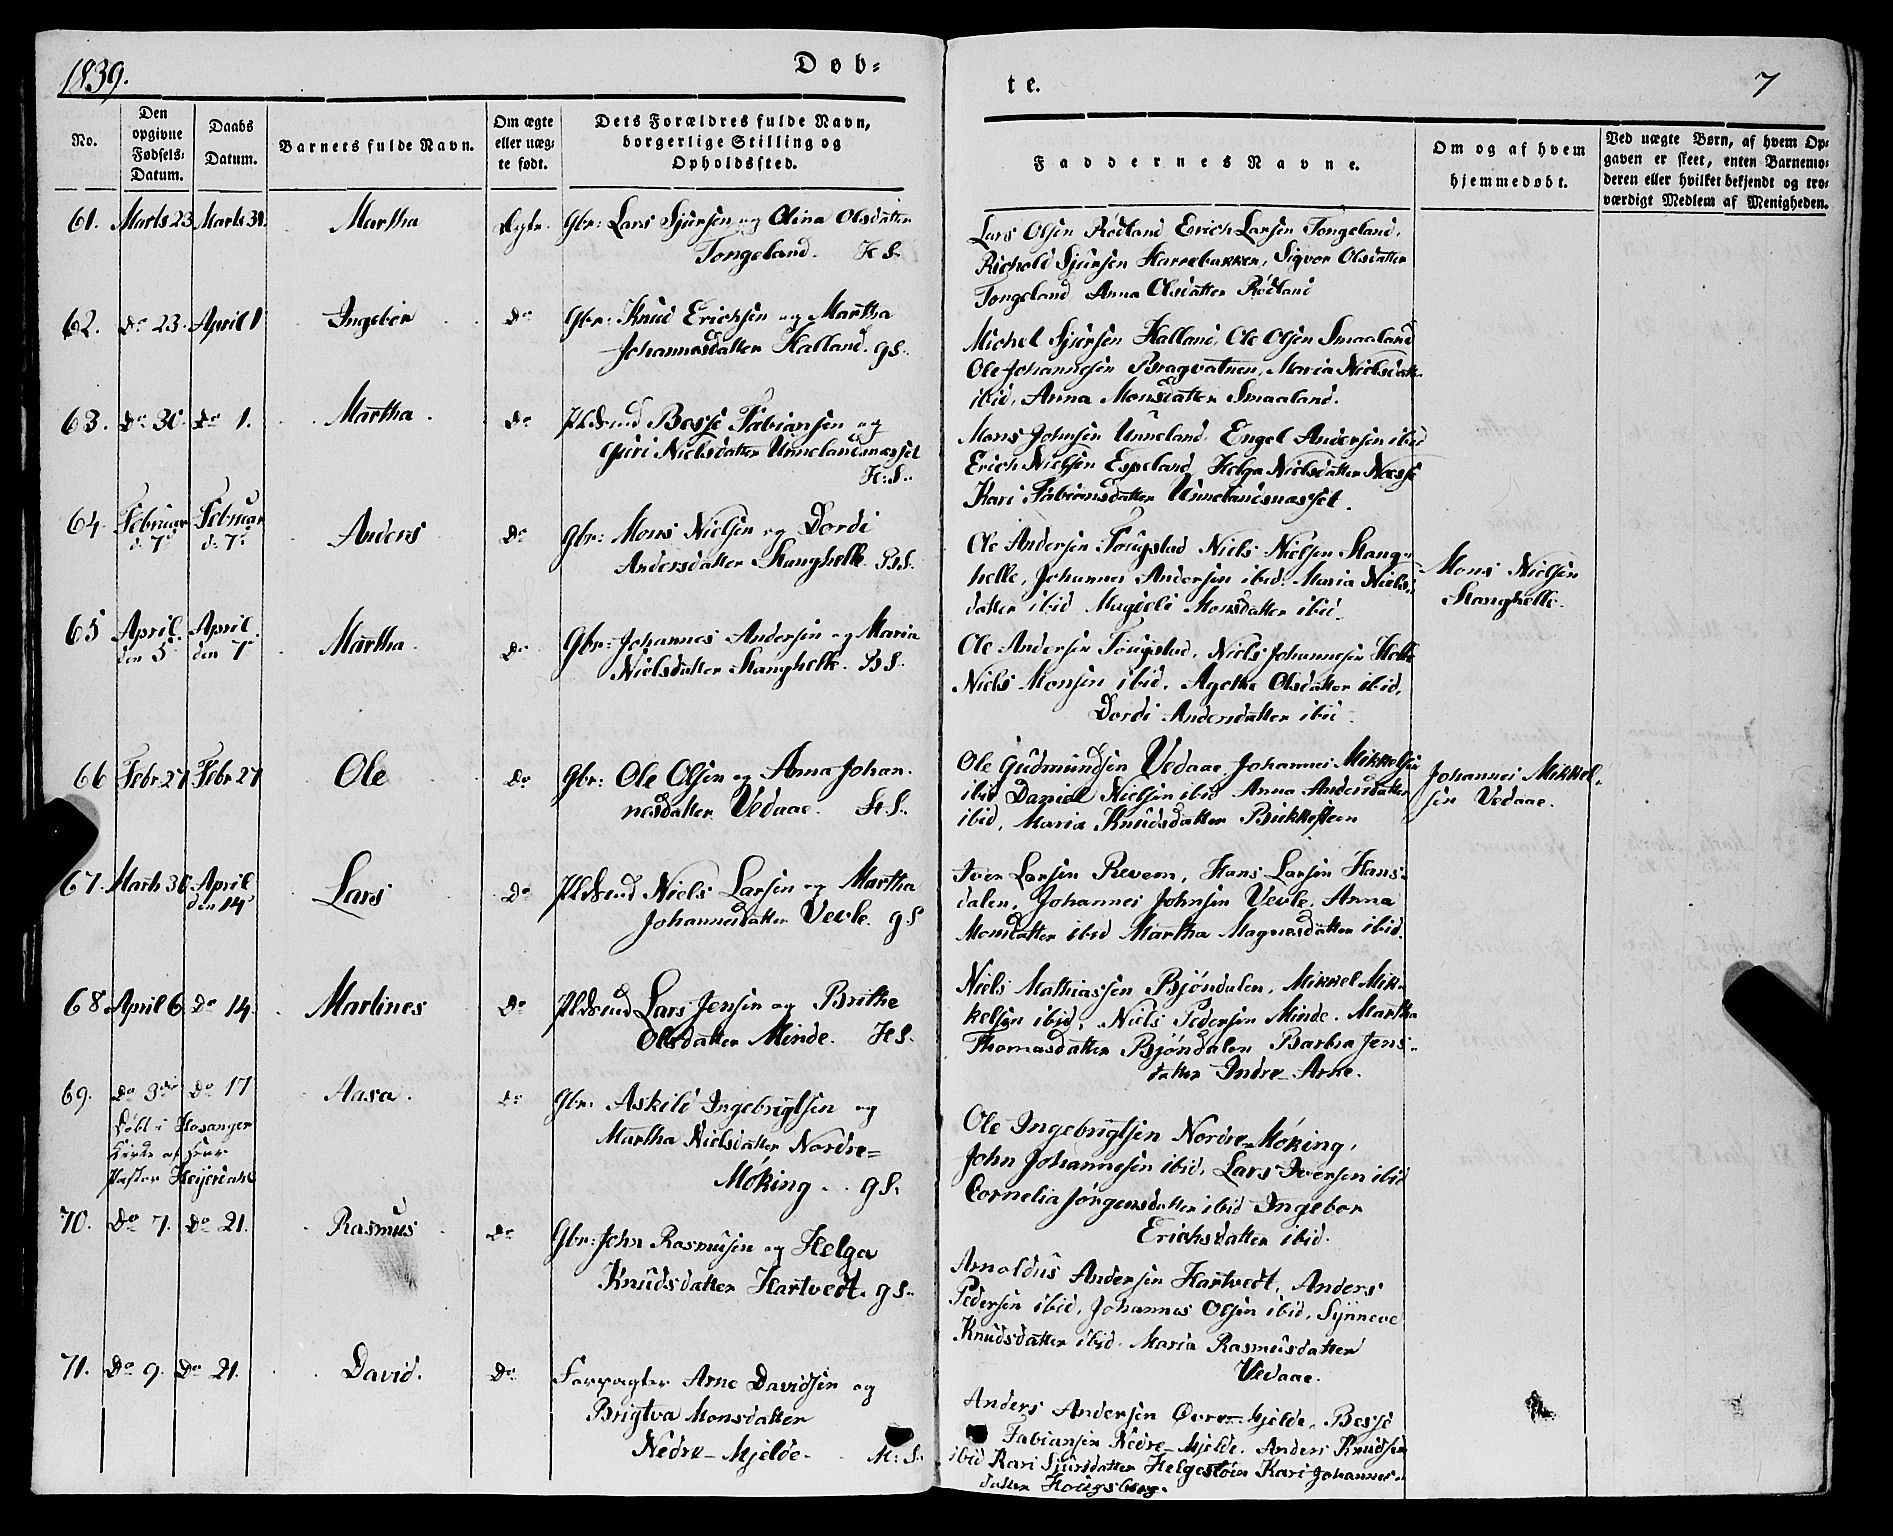 1839.
Døb-
te.
7
No.
Den opgivne Fødsels-Datum.
Daabs Datum.
Barnets fulde Navn.
Om ægte eller uæg-te født.
Dets Forældres fulde Navn, borgerlige Stilling og Opholdssted.
Faddernes Navne.
Om og af hvem hjemmedøbt.
Ved uægte Børn, af hvem Op-gaven er skeet, enten Barnemo-deren eller hvilket bekjendt og tro-værdigt Medlem af Menigheden.
61. Marts 23 Marts 31. Martha Ægte. Gbr: Lars Sjursen og Olina Olsdatter
Tongeland. H S.
Lars Olsen Rödland Erich Larsen Tongeland,
Richold Sjursen Harrebakken, Sigvor Olsdatter
Tongeland Anna Olsdatter Rödland
62. Do 23. April 1 Ingebor Do Gbr: Knud Erichsen og Martha
Johannesdatter Halland. g S.
Michel Sjursen Halland, Ole Olsen Smaaland
Ole Johannesen Bragvatnen, Maria Nielsdatt.
ibid, Anna Monsdatter Smaaland.
63. Do 30. Do 1. Martha. Do Pldsmd Besse Fabiansen og
Guri Nielsdatter Unnelandsnæsset
H: S.
Mons Johnsen Unneland, Engel Andersen ibid
Erich Nielsen Espeland Helga Nielsdatter Næsse
Kari Fabiansdatter Unnelandsnæsset.
64. Februar d: 7. Februar d: 7. Anders Do Gbr: Mons Nielsen og Dordi
Andersdatter Stanghelle. B S.
Ole Andersen Tougstad Niels Nielsen Stang-
helle, Johannes Andersen ibid. Maria Niels-
datter ibid Magdeli Monsdatter ibid.
Mons Nielsen
Stanghelle.
65 April den 5 April den 7 Martha. Do Gbr: Johannes Andersen og Maria
Nielsdatter Stanghelle. B S.
Ole Andersen Tougstad, Niels Johannesen Helle
Niels Monsen ibid, Agethe Olsdatter ibid,
Dordi Andersdatter ibid.
66 Febr. 27 Febr. 27 Ole Do Gbr: Ole Olsen og Anna Johan-
nesdatter Vedaae. H S.
Ole Gudmundsen Vedaae, Johannes Mikkelsen
ibid Daniel Nielsen ibid Anna Andersdatter
ibid, Maria Knudsdatter Bukkesteen
Johannes Mikkel-
sen Vedaae.
67. Marts 30 April den 14 Lars Do Pldsmd Niels Larsen og Martha
Johannesdatter Vevle. g S
Iver Larsen Reveem, Hans Larsen Hans-
dalen, Johannes Johnsen Vevle. Anna
Monsdatter ibid Martha Magnesdatter ibid.
68. April 6 Do 14. Martines Do Pldsmd Lars Jensen og Brithe
Olsdatter Minde. H S.
Niels Mathiassen Bjöndalen, Mikkel Mik-
kelsen ibid, Niels Pedersen Minde. Martha
Thomasdatter Bjöndalen Barbra Jens-
datter Indre-Arne.
69. Do 3die Do 17 Aasa. Do Gbr. Askild Ingebrigtsen og
Döbt i Hosanger
Kirke af Herr
Pastor Heijerdahl
Martha Nielsdatter Nordre=
Möking. g S.
Ole Ingebrigtsen Nordre-Möking,
John Johannesen ibid, Lars Iversen ibid
Cornelia Jörgensdatter ibid Ingebor
Erichsdatter ibid.
70. Do 7. Do 21. Rasmus Do Gbr: John Rasmusen og Helga
Knudsdatter Hartvedt. g S.
Arnoldus Andersen Hartvedt, Anders
Pedersen ibid, Johannes Olsen ibid, Synneve
Knudsdatter ibid. Maria Rasmusdatter
Vedaae.
71. Do 9. Do 21. David. Do Forpagter Arne Davidsen og
Brigtva Monsdatter
Nedre-Mjelde. H: S.
Anders Andersen Övre-Mjelde, Besse
Fabiansen Nedre-Mjelde. Anders Knudsen
ibid Kari Sjursdatter Helgestöen Kari Johannes-
datter Hougsberg.